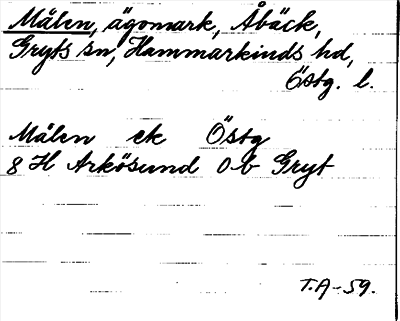 Målen, ägomark, Åbäck,
Gryts sn, Hammarkinds hd,
Östg. l.
Målen ek Östg
8 H Arkösund 0b Gryt
T.A-59.